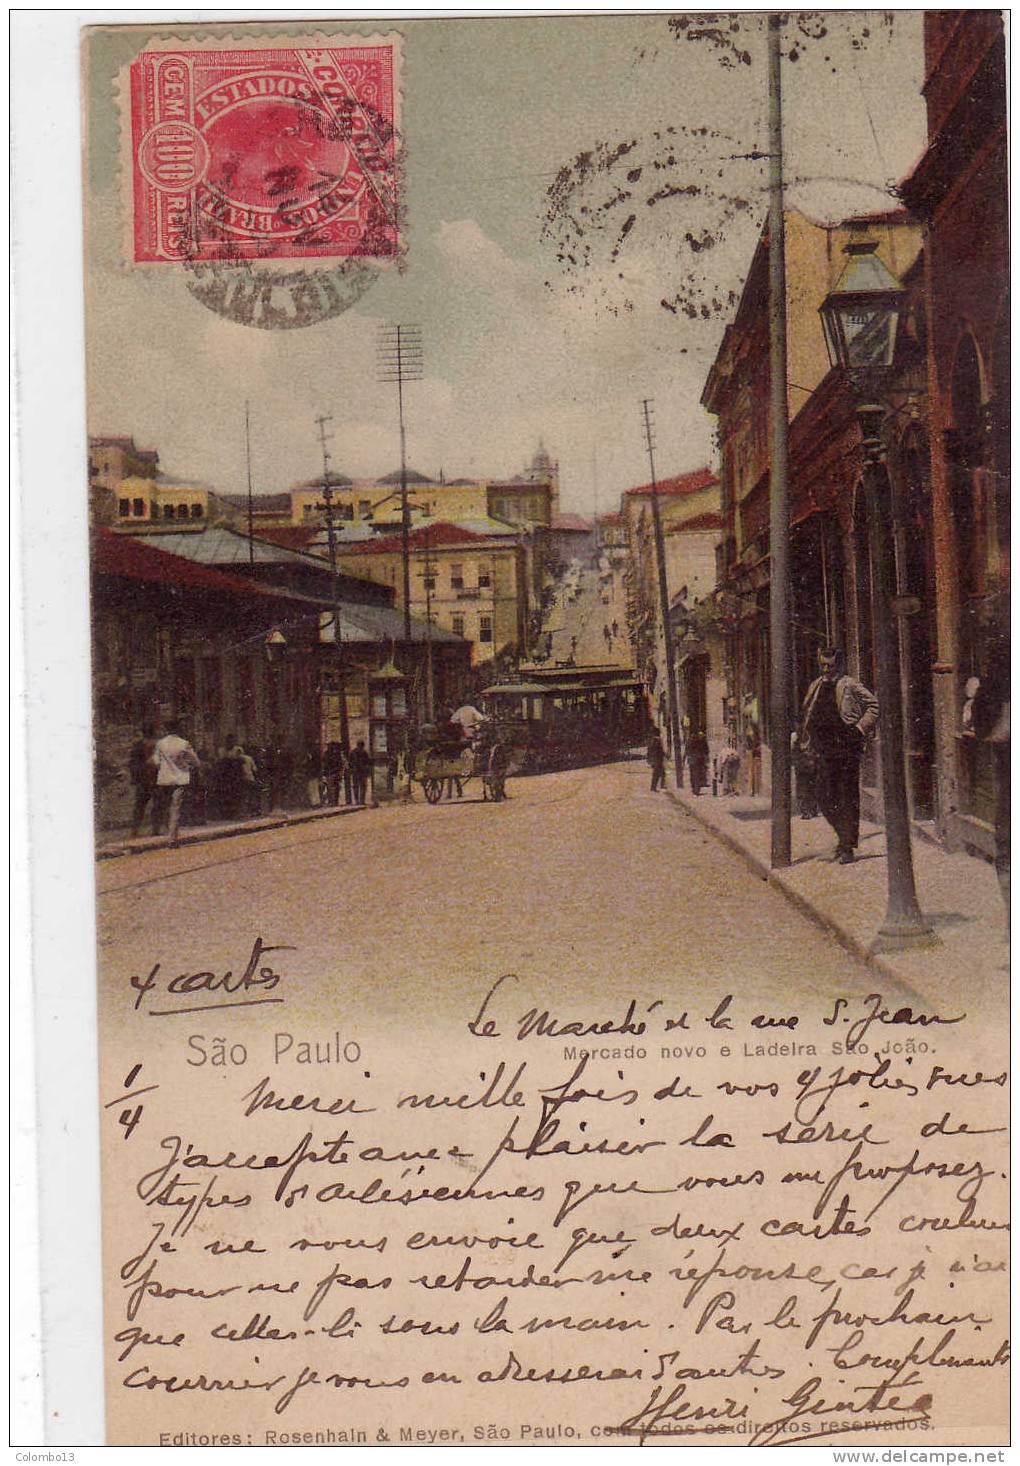 CORREIO
ESTADOS UNIDOS
BRAZIL
CEM 100 REIS
4 cartes
Le Marché et la rue S. Jean
São Paulo
Mercado novo e Ladeira São João.
1/4
Merci mille fois de vos 4 jolies vues
J'accepte avec plaisir la série de
types d'Arlésiennes que vous me proposez.
Je ne vous envoie que deux cartes couleurs
pour ne pas retarder ma réponse, car je n'ai
que celles-là sous la main. Par le prochain
courrier je vous en adresserai d'autres. Compliments
Henri
Editores: Rosenhain & Meyer, São Paulo, com todos os direitos reservados.
Colombo13
www.delcampe.net